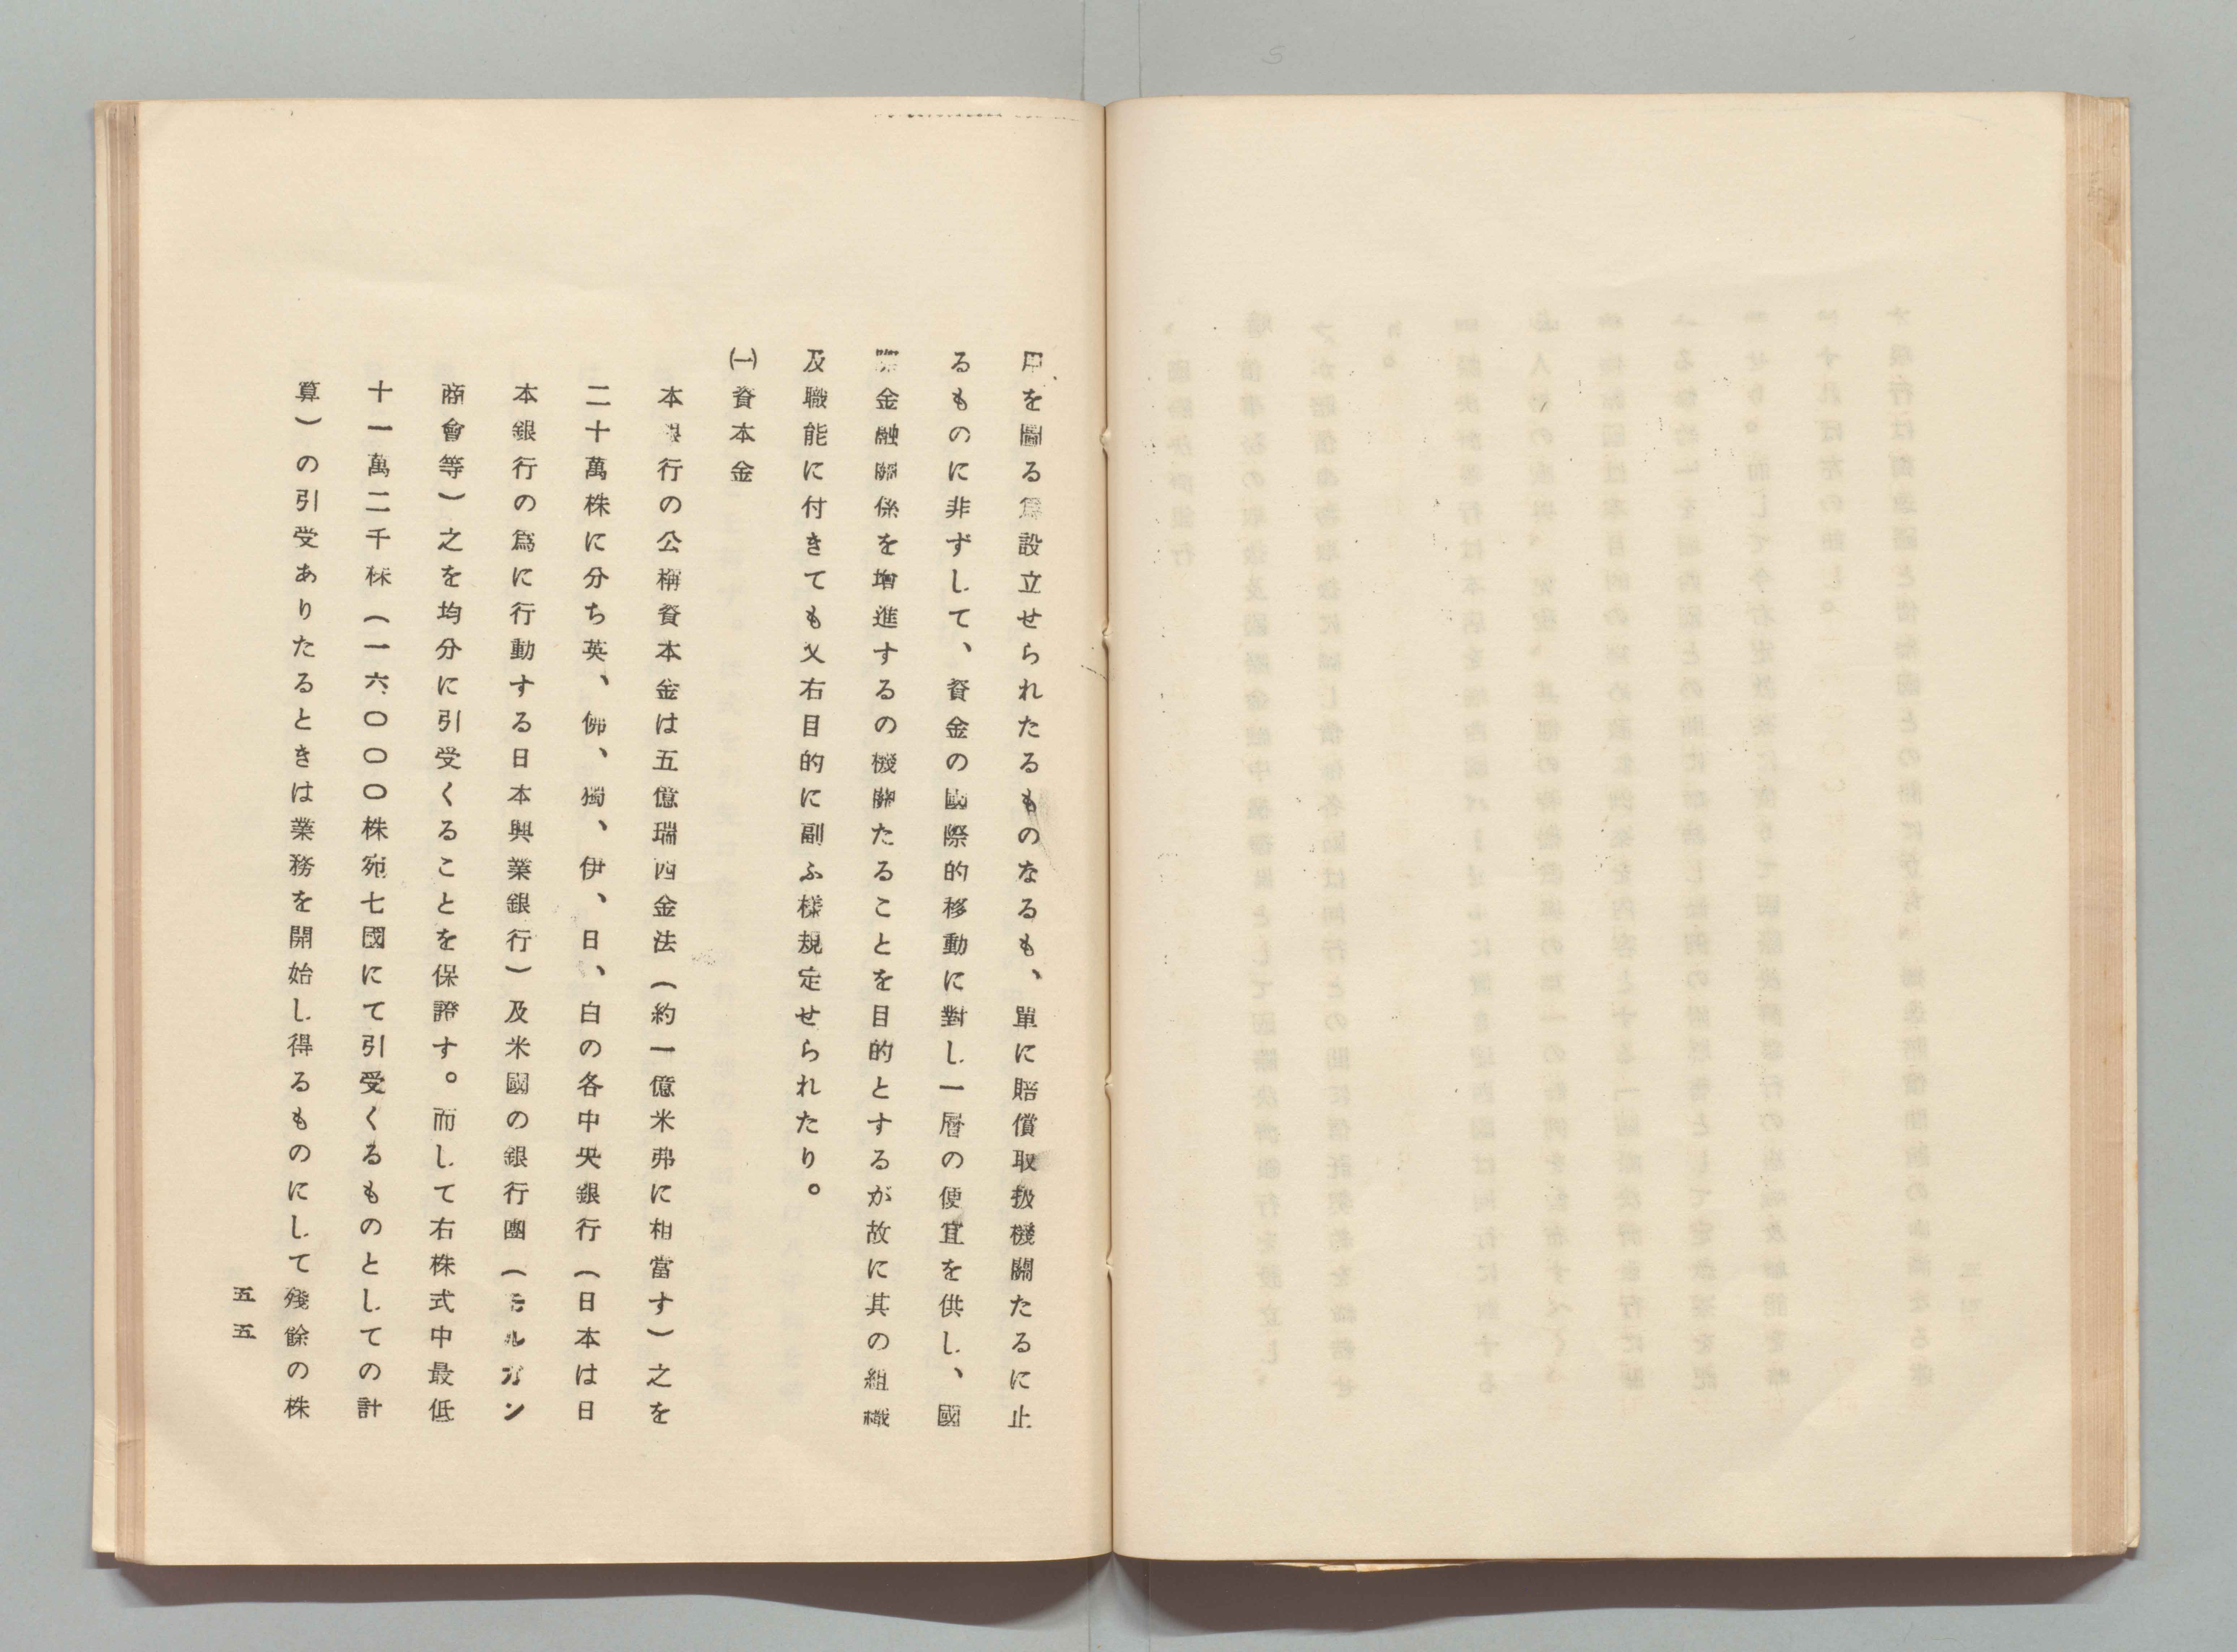 用を圖る爲設立せられたるものなるも、單に賠償取扱機關たるに止
るものに非ずして、資金の國際的移動に對し一層の便宜を供し、國
際金融關係を增進するの機關たることを目的とするが故に其の組織
及職能に付きても又右目的に副ふ樣規定せられたり。
㈠資本金
本銀行の公稱資本金は五億瑞西金法(約一億米弗に相當す)之を
二十萬株に分ち英、佛、獨、伊、日、白の各中央銀行(日本は日
本銀行の爲に行動する日本興業銀行)及米國の銀行團(モルガン
商會等)之を均分に引受くることを保證す。而して右株式中最低
十一萬二千株(一六、〇〇〇株宛七國にて引受くるものとしての計
算)の引受ありたるときは業務を開始し得るものにして殘餘の株
五五